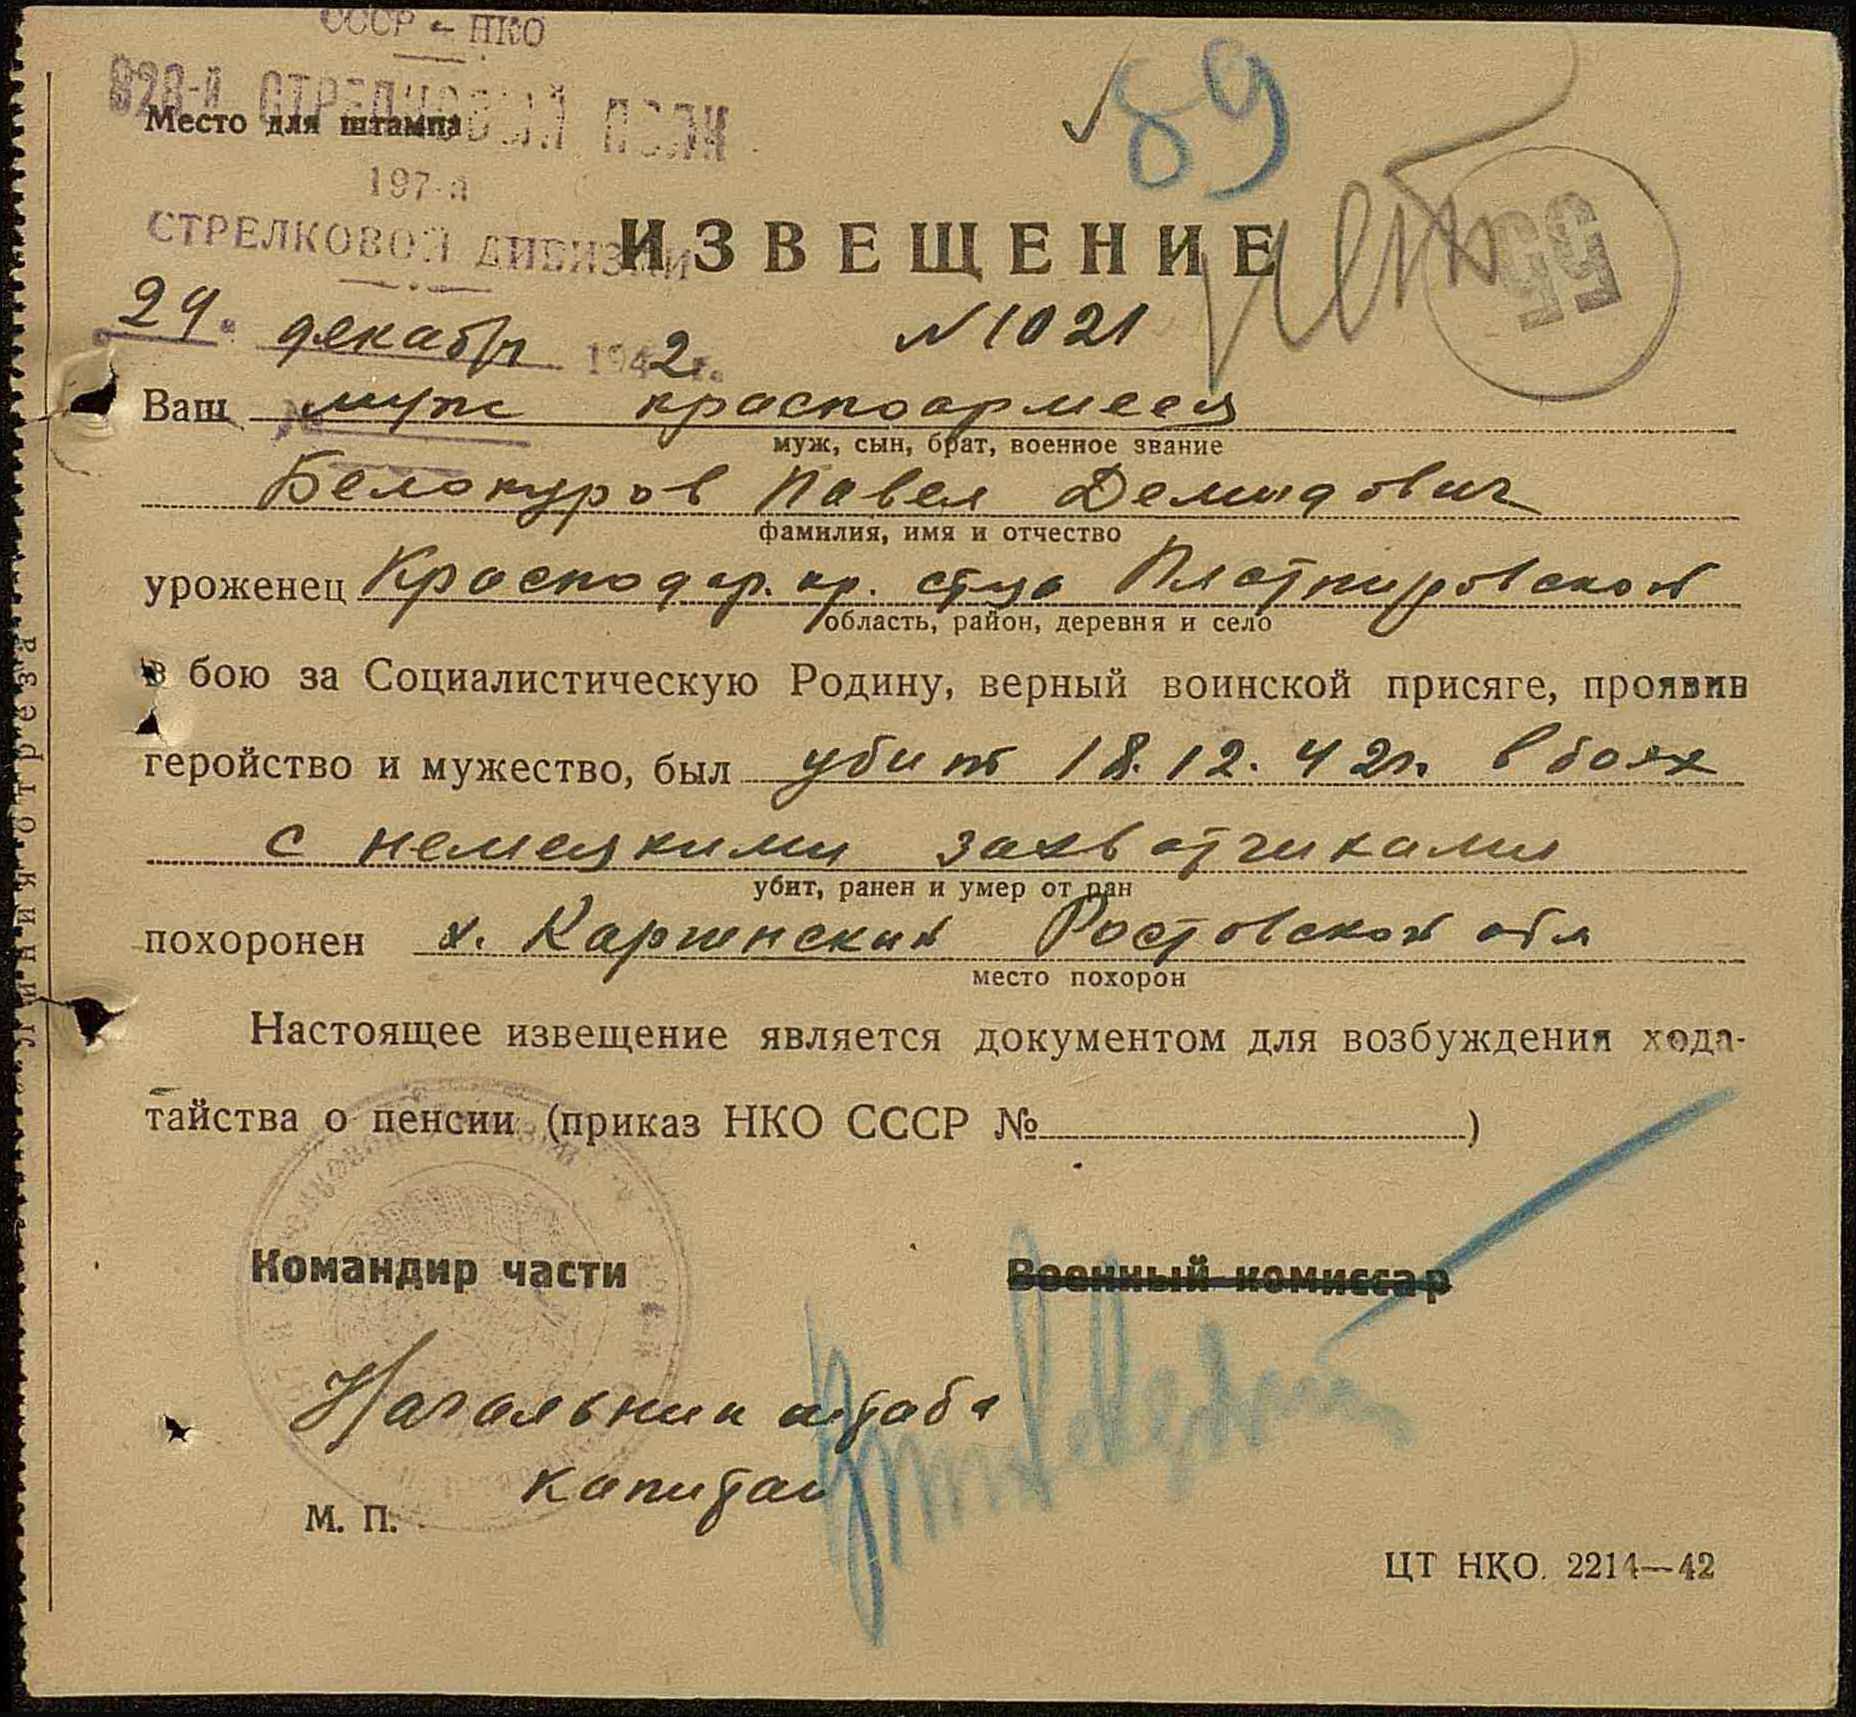 СССР - НКО
828-й СТРЕЛКОВЫЙ ПОЛК
Место для штампа
197-й
СТРЕЛКОВОЙ ДИВИЗИИ
√ 89
нет
55
ИЗВЕЩЕНИЕ
29. декабр 1942 г. N 1021
Ваш муж красноармеец
№
муж, сын, брат, военное звание
Белокуров Павел Демидович
фамилия, имя и отчество
уроженец Краснодар. кр. стца Пластнировской
область, район, деревня и село
в бою за Социалистическую Родину, верный воинской присяге, проявив
геройство и мужество, был убит 18.12.42г. в боях
с немецкими захватчиками
убит, ранен и умер от ран
похоронен х. Каргинский Ростовской обл
место похорон
Настоящее извещение является документом для возбуждения хода-
тайства о пенсии (приказ НКО СССР № )
Командир части Военный комиссар
Начальник штаба
капитан
М. П.
ЦТ НКО. 2214—42
Линия отреза